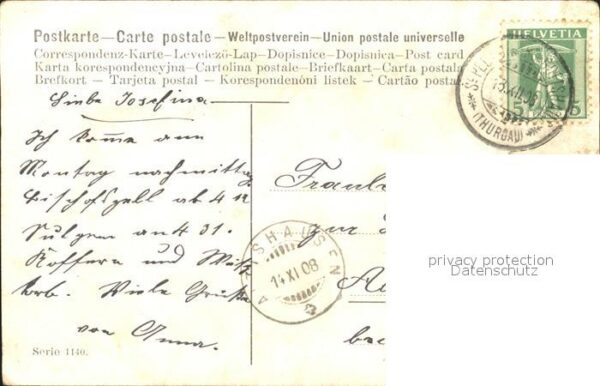 Postkarte—Carte postale—Weltpostverein—Union postale universelle
Correspondenz-Karte—Levelező-Lap—Dopisnice—Dopisnica—Post card
Karta korespondencyjna—Cartolina postale—Briefkaart—Carta postala
Brefkort — Tarjeta postal — Korespondenčni listek — Cartão postal
HELVETIA
5
5
(THURGAU)
XII.08
Liebe Josefina
Ich komme am
Montag nachmittag
Bischofszell ab 4
Sulgen an 4 31.
Koffern und
korb. Viele Grüße
von Anna.
Serie 1140.
14 XI 08
Frau
zur
privacy protection
Datenschutz